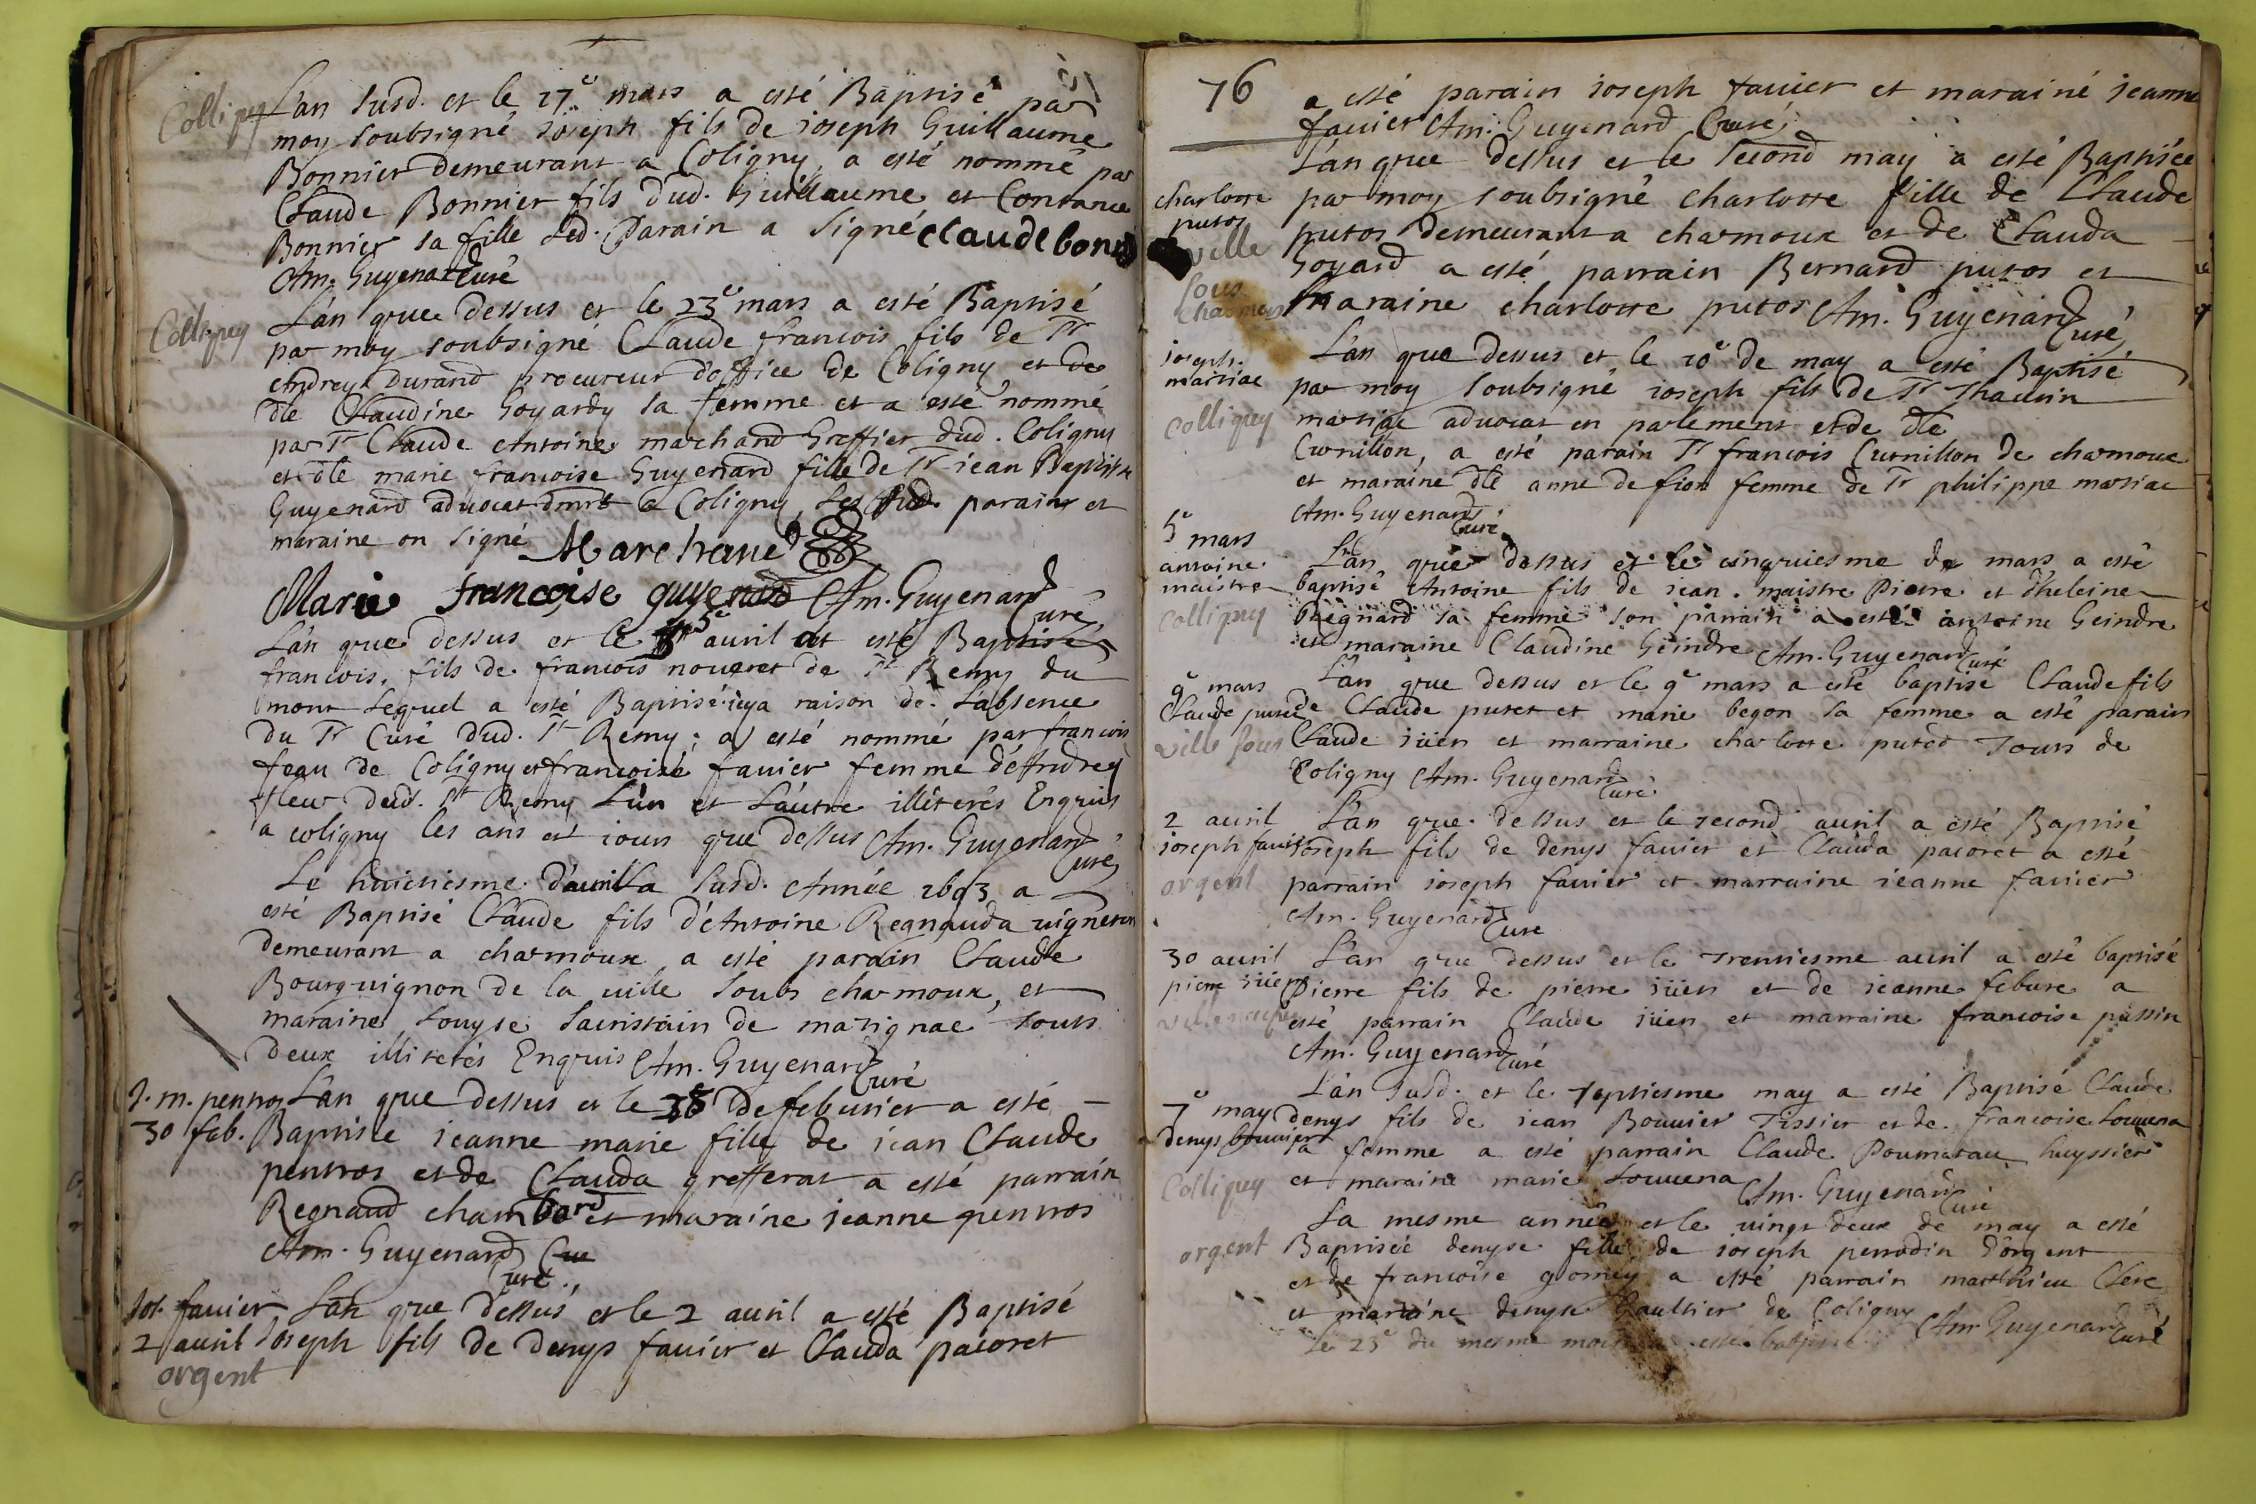 Colligny
L'an susd. et le 17e mars a esté Baptisé par
moy soubsigné Joseph fils de ioseph Guillaume
Bonnier demeurant a Coligny, a esté nommé par
Claude Bonnier fils dud. Guillaume et Constance
Bonnier sa fille led. Parain a signé claude bonnie
Am. Guyenard Curé
Colligny
L'an que dessus et le 23e mars a esté Baptisé
par moy soubsigné Claude francois fils de Sr
Andrey Durand procureur d'office de Coligny et de
dle Claudine Goyardy sa femme et a esté nommé
par Sr Claude Antoine marchand Greffier dud. Coligny
et dle marie francoise Guyenard fille de Sr iean Baptiste
Guyenard aduocat dmrt a Coligny, Les sud. parain et
maraine on signé Marchand
Marie francoise guyenard Am. Guyenard Curé
L'an que dessus et le 5e auril at esté Baptisé
francois, fils de francois noueret de St Remy du
mont Lequel a esté Baptisé icy a raison de L'absence
du Sr Curé dud. St Remy; a esté nommé par francois
feau de Coligny et francoise fauier femme d'Andrey
fleur dud. St Remy L'un et L'autre illiterés Enquis
a coligny les ans et iours que dessus Am. Guyenard Curé
Le huictiesme d'auril La susd. Année 1693 a
esté Baptisé Claude fils d'Antoine Regnauda uigneron
demeurant a charmoux a esté parain Claude
Bourguignon de la uille soubs charmoux, et
maraine Louyse Sacristain de matignac touts
deux illiterés Enquis Am. Guyenard Curé
J. m. pentros L'an que dessus et le 38 De feburier a esté
30 feb. Baptisée ieanne marie fille de iean Claude
pentros et de Clauda grefferat a esté parrain
Regnaud chambard et maraine ieanne pentros
Am. Guyenard Cure
Curé
Jos. fauier L'an que dessus et le 2 auril a esté Baptisé
2 auril Joseph fils de Denys fauier et Clauda pacoret
orgent
76
a esté parain ioseph fauier et maraine ieanne
fauier Am. Guyenard Curé
L'an que dessus et le second may a esté Baptisée
charlotte putos
par moy soubsigné charlotte fille de Claude
ville sous Charmoux
putos demeurant a charmoux et de Clauda
Goyard a esté parrain Bernard putos et
maraine charlotte putos Am. Guyenard Curé
ioseph martiae
L'an que dessus et le 10e de may a esté Baptisé
par moy soubsigné ioseph fils de Sr Thauuin
Colligny
martiae aduocat en parlement et de dle
Curnillon, a esté parain Sr francois Curnillon de charmoux
et maraine dle anne de fion femme de Sr philippe martiae
Am. Guyenard Curé
5e mars
antoine maistre
L'an que dessus et le cinquiesme de mars a esté
baptisé Antoine fils de iean. maistre Pierre et d'heleine
Colligny
Regnard sa femme son parrain a esté antoine Geindre
et maraine Claudine Geindre Am. Guyenard Curé
9e mars
L'an que dessus et le 9e mars a esté baptisé Claude fils
Claude putet
de Claude putet et marie begon sa femme a esté parain
ville sous
Claude iüen et marraine charlotte puted Tours de
Coligny Am. Guyenard Curé
2 auril
L'an que dessus et le second auril a esté Baptisé
ioseph fauier
ioseph fils de denys fauier et Clauda pacoret a esté
orgent
parrain ioseph fauier et marraine ieanne fauier
Am. Guyenard Cure
30 auril
L'an que dessus et le Trentiesme auril a esté baptisé
pierre iüen
Pierre fils de pierre iüen et de ieanne febure a
esté parrain Claude iüen et marraine francoise passin
Am. Guyenard Curé
L'an susd. et le septiesme may a esté Baptisé Claude
7e may
denys fils de iean Bouuier Tissier et de francoise Louuena
denys bouuier
sa femme a esté parrain Claude Poumatau huyssier
Colligny
et maraine marie Louuena Am. Guyenard Curé
La mesme année et le uingt deux de may a esté
orgent
Baptisée denyse fille de ioseph perrodin d'orgent
et de francoise gomey a esté parrain matthieu Clerc
et maraine denyse Gaultier de Coligny Am. Guyenard Curé
Le 23e du mesme mois a esté baptisé